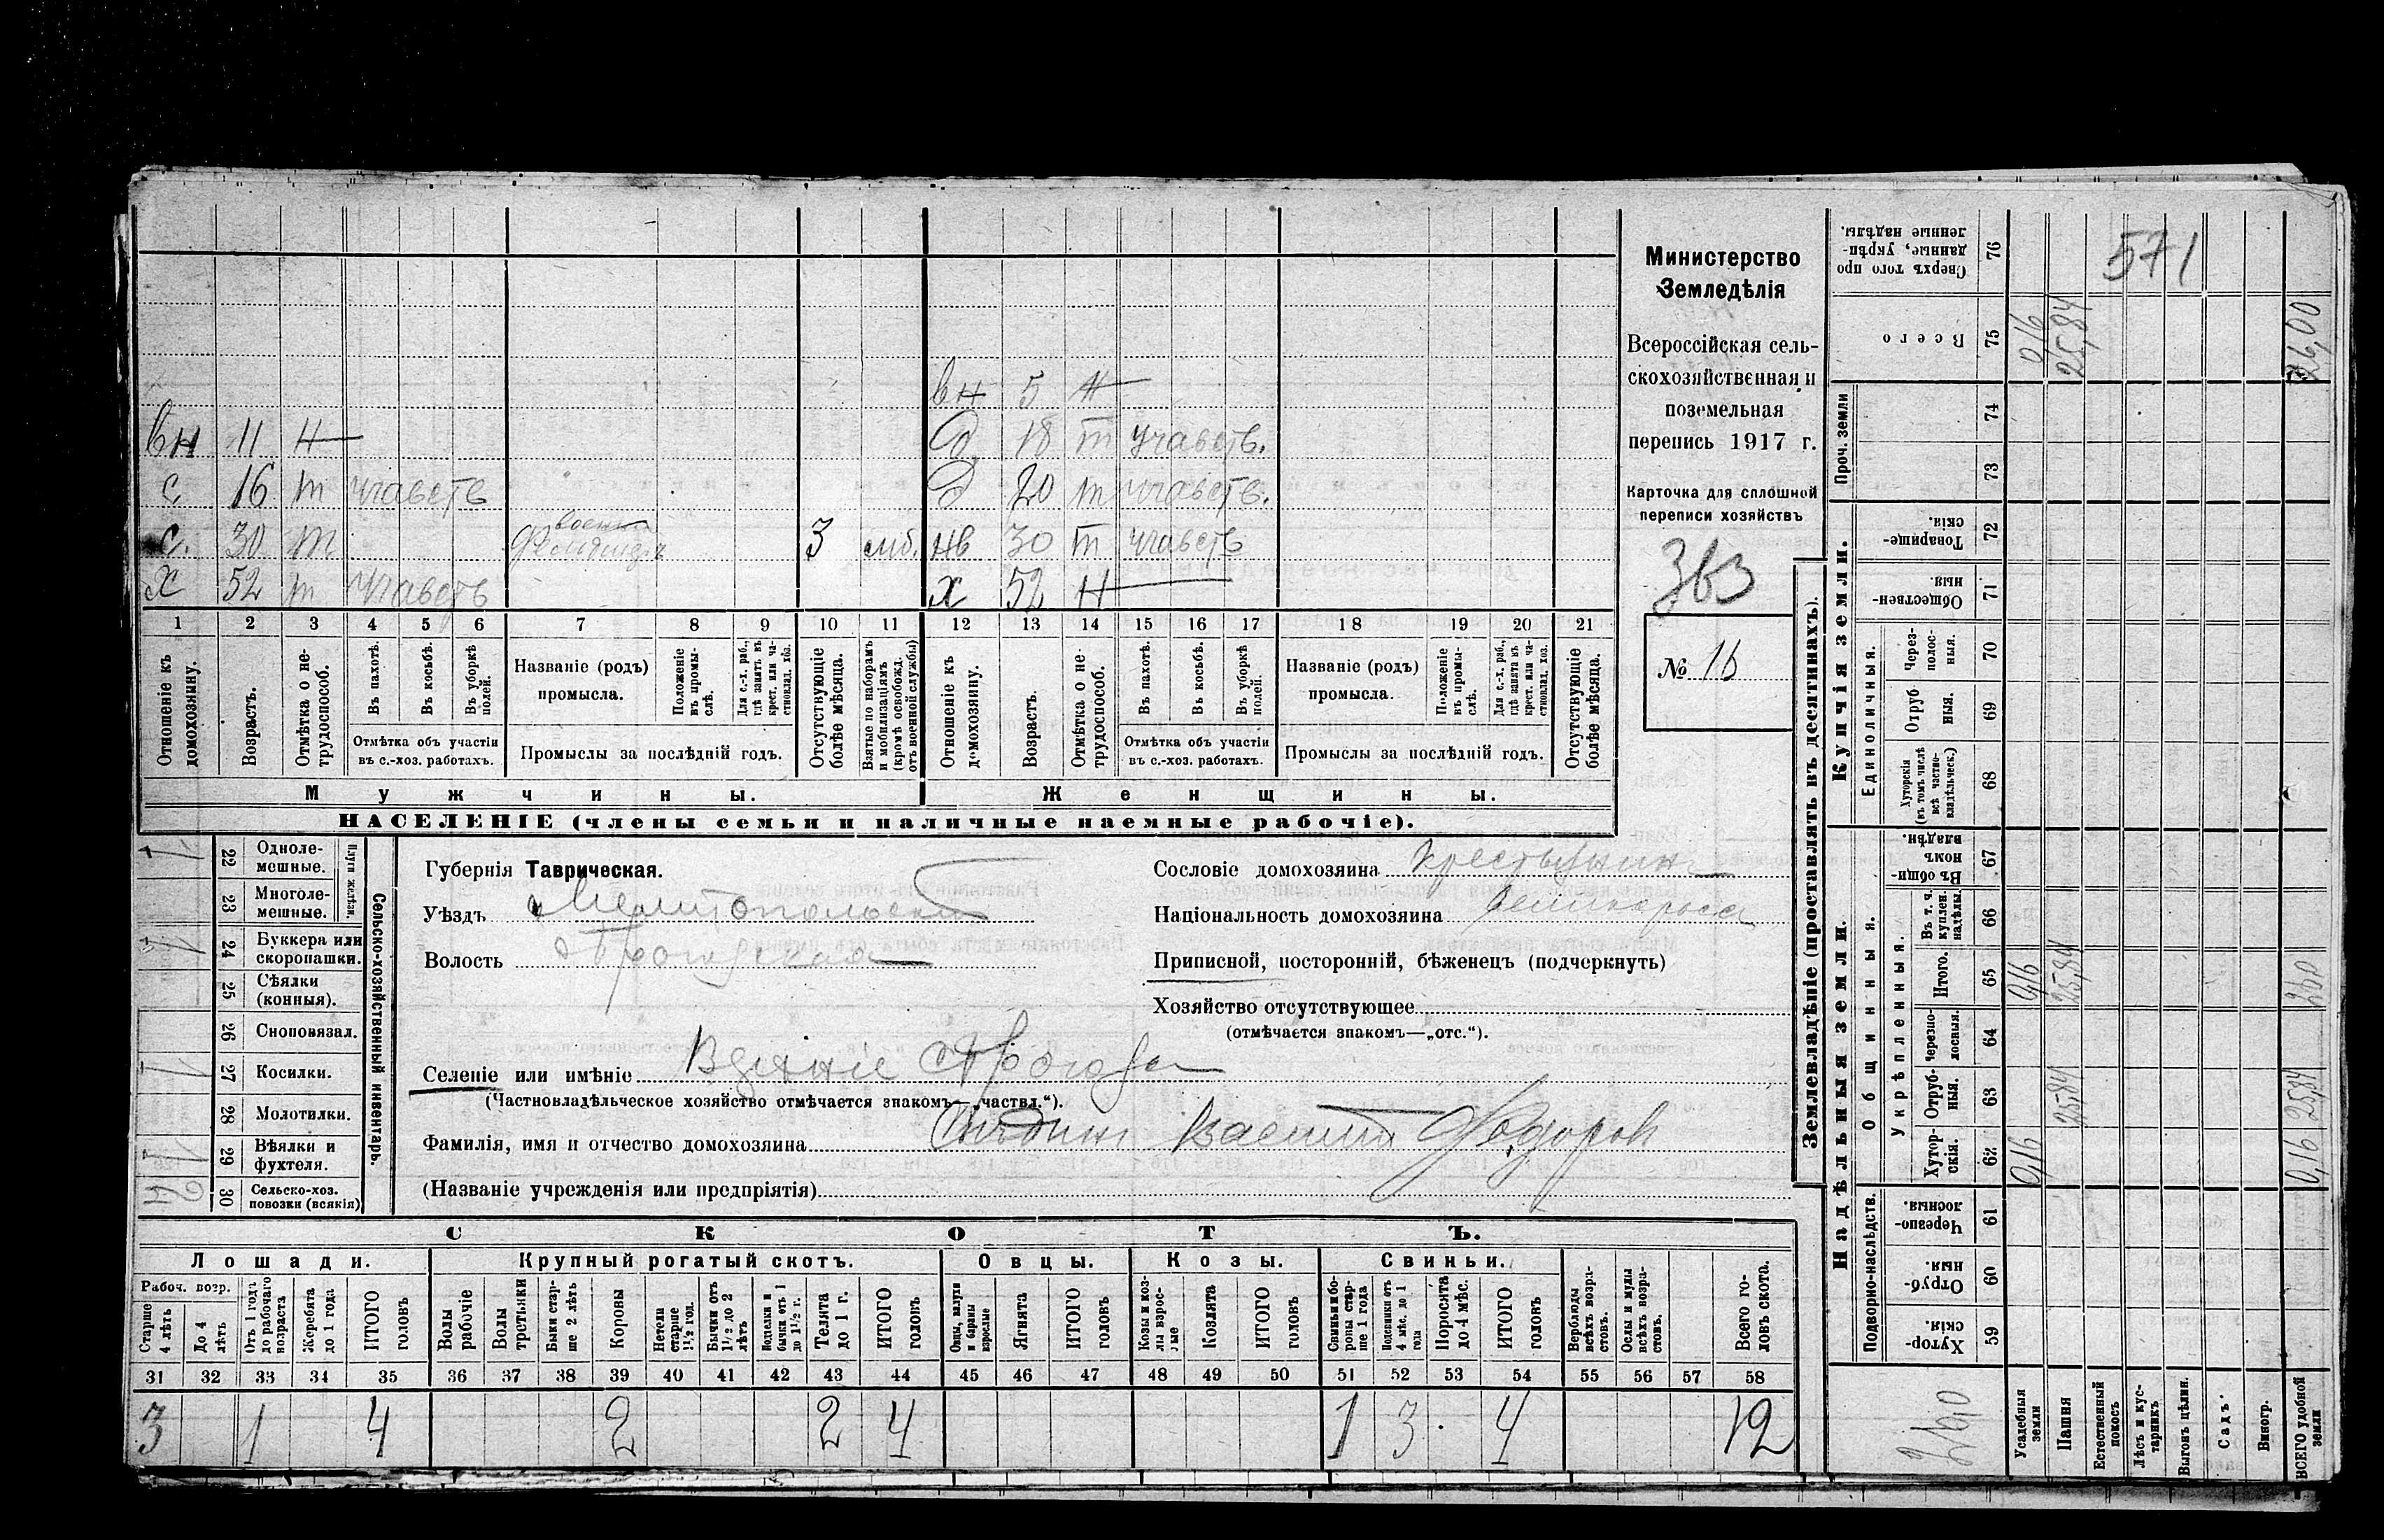 вн 5 н
вн 11 н д 18 т участв.
с 16 т участв д 20 т участв.
с. 30 т 3 мб. нв 30 т участв
х 52 т участв х 52 н
1 2 3 4 5 6 7 8 9 10 11 12 13 14 15 16 17 18 19 20 21
Отношеніе къ домохозяину.
Возрастъ.
Отмѣтка о нетрудоспособ.
Въ пахотѣ.
Въ косьбѣ.
Въ уборкѣ полей.
Отмѣтка объ участіи въ с.-хоз. работахъ.
Названіе (родъ) промысла.
Положеніе въ промыслѣ.
Для с.-х. раб., гдѣ занятъ въ крест. или частновлад. хоз.
Промыслы за послѣдній годъ.
Отсутствующіе болѣе мѣсяца.
Взятые по наборамъ и мобилизаціямъ (кромѣ освобожд. отъ военной службы)
Отношеніе къ домохозяину.
Возрастъ.
Отмѣтка о нетрудоспособ.
Въ пахотѣ.
Въ косьбѣ.
Въ уборкѣ полей.
Отмѣтка объ участіи въ с.-хоз. работахъ.
Названіе (родъ) промысла.
Положеніе въ промыслѣ.
Для с.-х. раб., гдѣ занята въ крест. или частновлад. хоз.
Промыслы за послѣдній годъ.
Отсутствующіе болѣе мѣсяца.
Мужчины. Женщины.
НАСЕЛЕНІЕ (члены семьи и наличные наемные рабочіе).
Министерство
Земледѣлія
Всероссійская сель-
скохозяйственная и
поземельная
перепись 1917 г.
Карточка для сплошной
переписи хозяйствъ
№ 16
Сельско-хозяйственный инвентарь.
Плуги желѣзн.
22 Одноле-
мешные.
23 Многоле-
мешные.
24 Буккера или
скоропашки.
25 Сѣялки
(конныя).
26 Сноповязал.
27 Косилки.
28 Молотилки.
29 Вѣялки и
фухтеля.
30 Сельско-хоз.
повозки (всякія)
Губернія Таврическая.
Уѣздъ Мелитопольскій
Волость
Сословіе домохозяина крестьянинъ
Національность домохозяина великороссъ
Приписной, посторонній, бѣженецъ (подчеркнуть)
Хозяйство отсутствующее
(отмѣчается знакомъ—„отс.“).
Селеніе или имѣніе
(Частновладѣльческое хозяйство отмѣчается знакомъ—„частвл.“).
Фамилія, имя и отчество домохозяина Василій Федоровъ
(Названіе учрежденія или предпріятія)
СКОТЪ.
Лошади. Крупный рогатый скотъ. Овцы. Козы. Свиньи.
Рабоч. возр.
Старше 4 лѣтъ
До 4 лѣтъ
Отъ 1 года до рабочаго возраста
Жеребята до 1 года
ИТОГО головъ
Волы рабочіе
Волы третьяки
Быки старше 2 лѣтъ
Коровы
Нетели старше 1½ год.
Бычки отъ 1½ до 2 лѣтъ
Подтелки и бычки отъ 1 до 1½ г.
Телята до 1 г.
ИТОГО головъ
Овцы, валухи и бараны взрослые
Ягнята
ИТОГО головъ
Козы и козлы взрослые
Козлята
ИТОГО головъ
Свиньи и боровы старше 1 года
Подсвинки отъ 4 мѣс. до 1 года
Поросята до 4 мѣс.
ИТОГО головъ
Верблюды всѣхъ возрастовъ.
Ослы и мулы всѣхъ возрастовъ.
Всего головъ скота.
31 32 33 34 35 36 37 38 39 40 41 42 43 44 45 46 47 48 49 50 51 52 53 54 55 56 57 58
3 1 4 2 2 4 1 3 4 12
Землевладѣніе (проставлять въ десятинахъ).
Надѣльныя земли. Купчія земли.
Проч. земли
Подворно-наслѣдств.
Общинныя.
Укрѣпленныя.
Единоличныя.
Сверхъ того проданные, укрѣпленные надѣлы. 76
571
Всего 75 0,16 25,84 26,00
74
73
Товарищескія. 72
Общественныя. 71
Черезполосныя. 70
Отрубныя. 69
Хуторскія (въ томъ числѣ всѣ частновладѣльческ.) 68
Въ общинномъ владѣн. 67
Въ т. ч. куплен. надѣлы. 66
Итого. 65 0,16 25,84 260
Черезполосныя. 64
Отрубныя. 63 25,84 25,84
Хуторскія. 62 0,16 0,16
Черезполосныя. 61
Отрубныя. 60
Хуторскія. 59
26,0
Усадебныя земли
Пашня
Естественный покосъ
Лѣсъ и кустарникъ
Выгонъ цѣлин.
Садъ.
Виногр.
ВСЕГО удобной земли